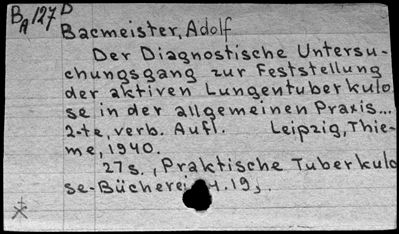 BA127D
Bacmeister, Adolf
Der Diagnostische Untersu-
chungsgang zur Feststellung
der aktiven Lungentuberkulo
se in der allgemeinen Praxis...
2-te, verb. Aufl. Leipzig, Thie-
me, 1940.
27s., Praktische Tuberkulo
se-Bücherei H.19).